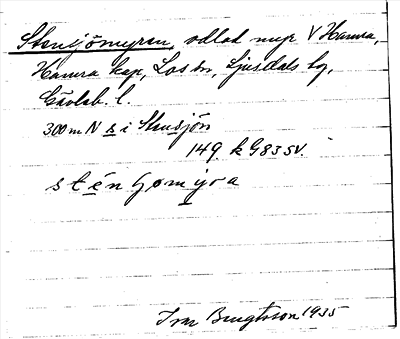 Stensjömyran, odlad myr V Hamra,
Hamra kap, Los sn, Ljusdals tg,
Gävleb. l.
300 m N s i Stensjön
149. k G83 SV.
stẹ́nʃömyra
Ivar Bengtsson 1935